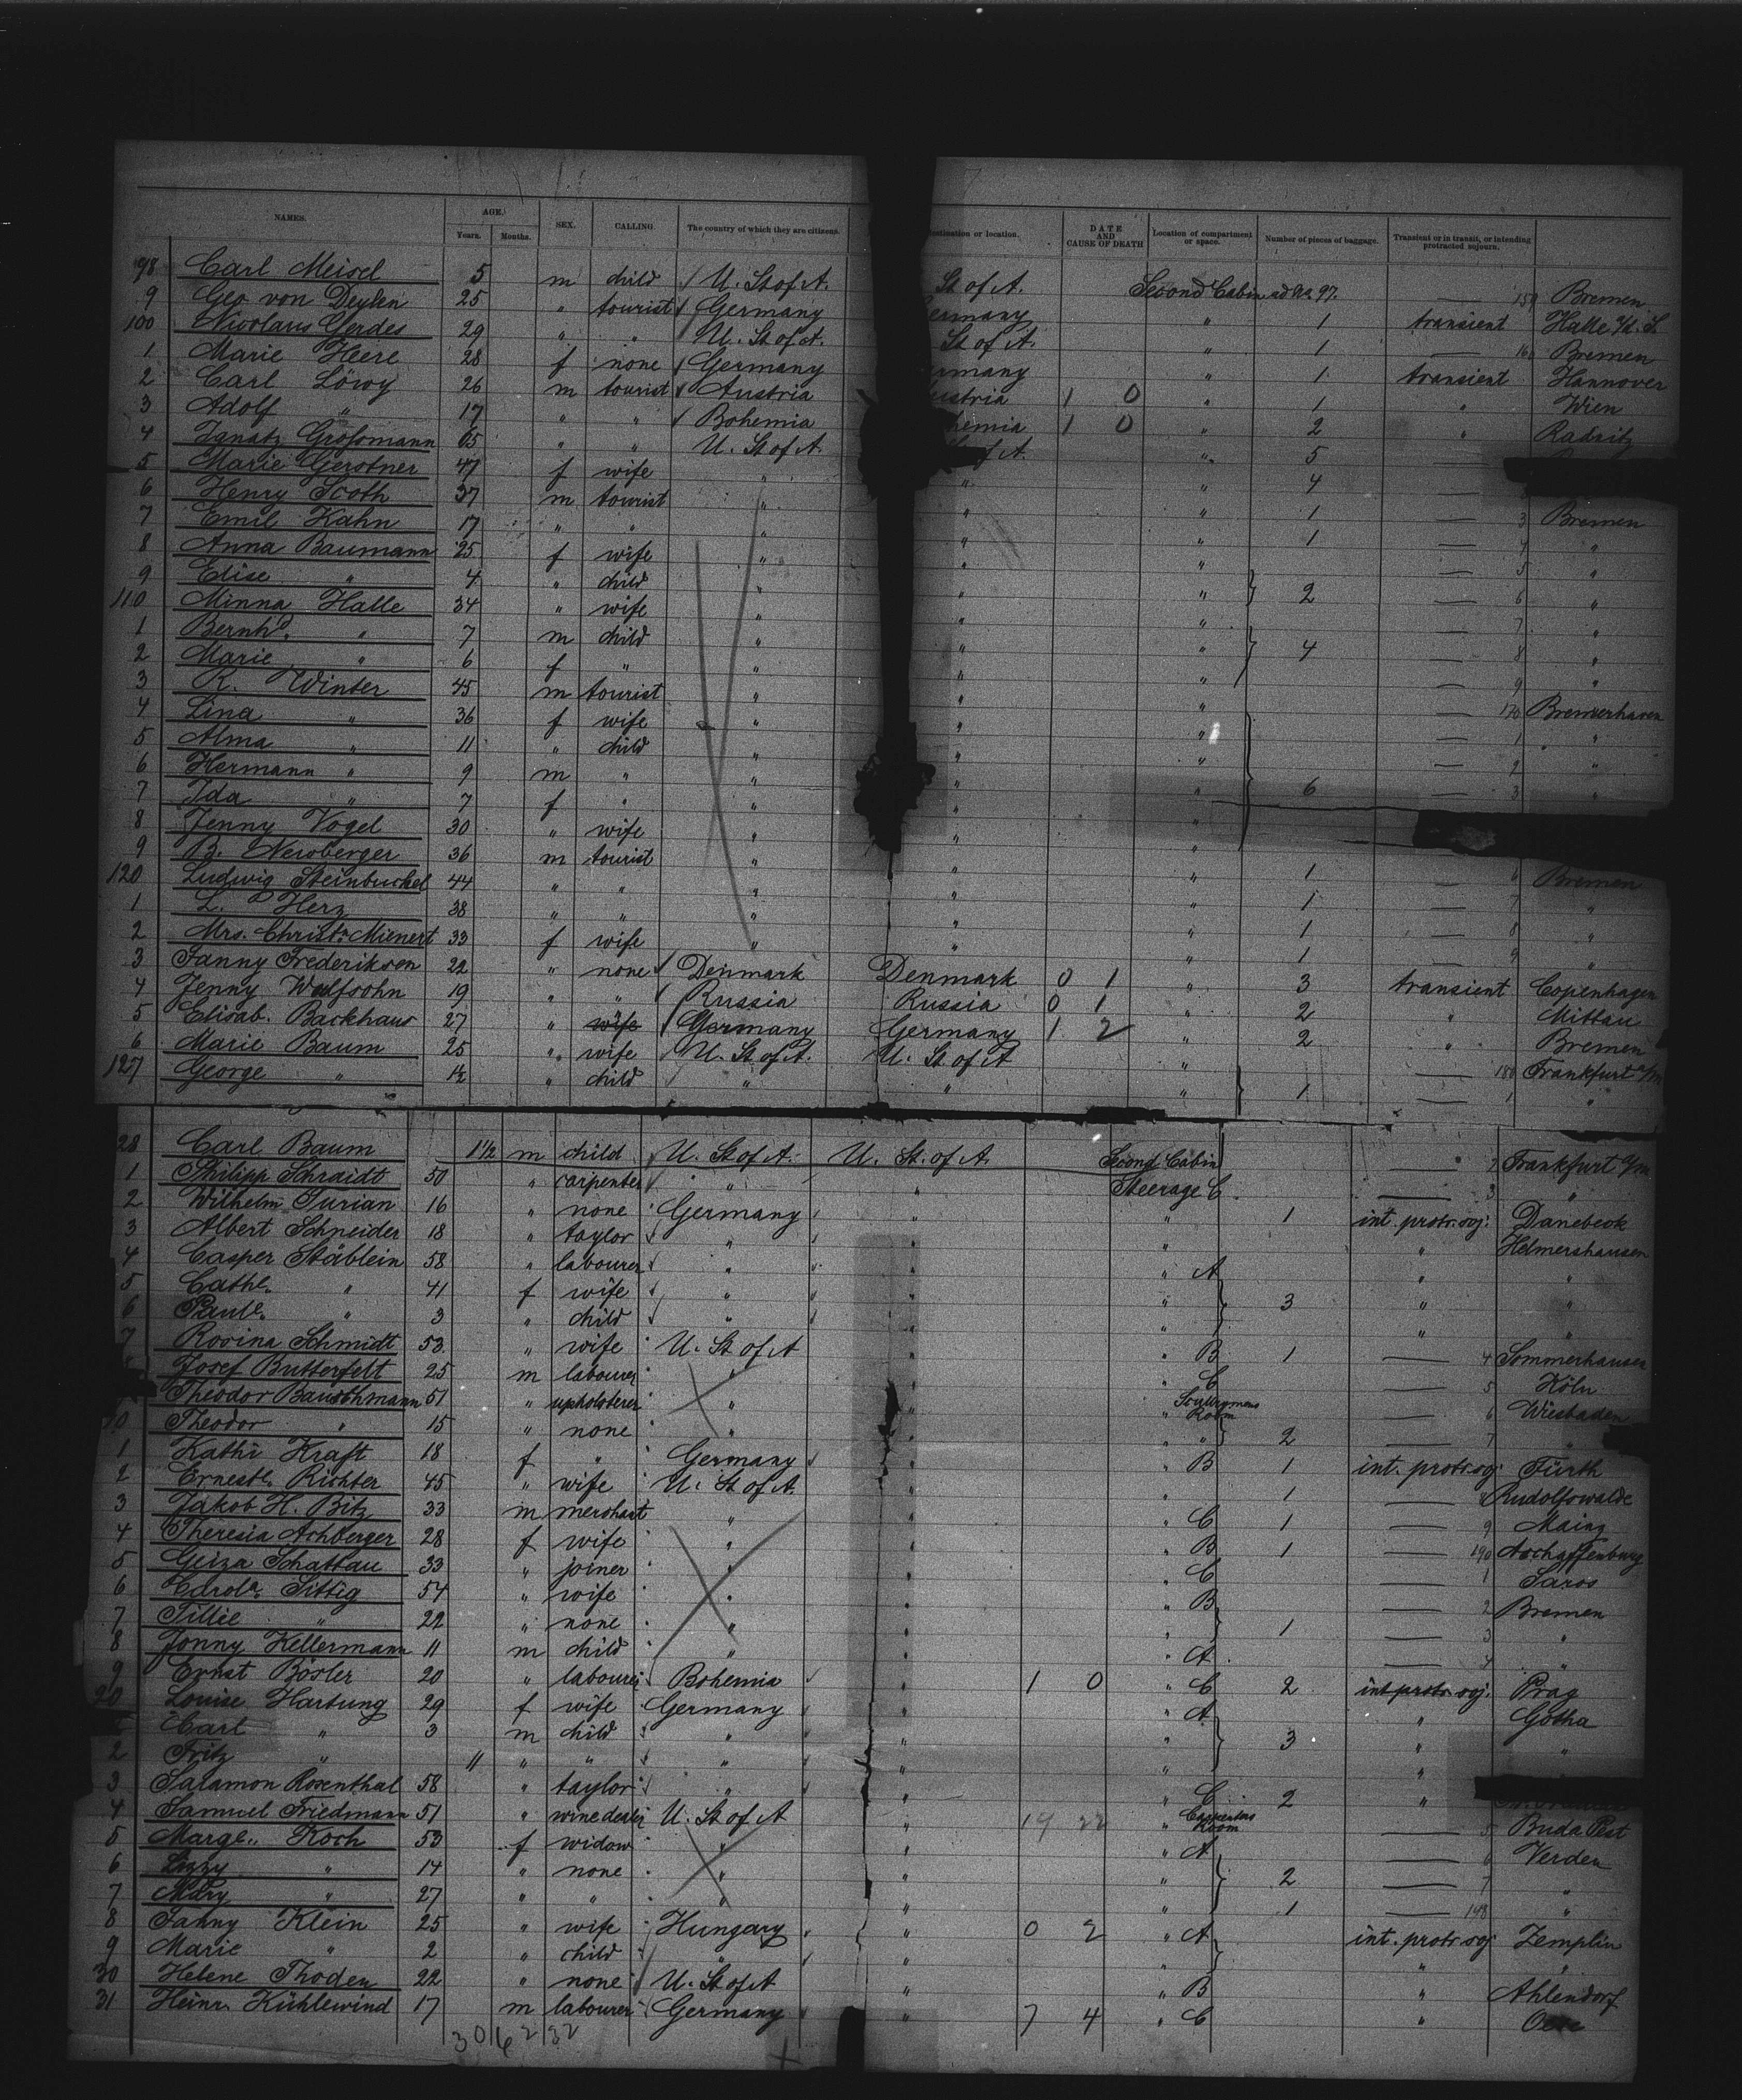 NAMES. AGE. Years. Months. SEX. CALLING. The country of which they are citizens. destination or location. DATE AND CAUSE OF DEATH Location of compartment or space. Number of pieces of baggage. Transient or in transit, or intending protracted sojourn.
98 Carl Meisel 5 m child U. St of A. St of A. Second Cabin ad No. 97. — 159 Bremen
9 Geo von Deylen 25 " tourist Germany ermany " 1 transient Halle a/d. S.
100 Nicolaus Gerdes 29 " " U. St of A. St of A. " 1 — 160 Bremen
1 Marie Heere 28 f none Germany ermany " 1 transient Hannover
2 Carl Löwy 26 m tourist Austria ustria 1 0 " 1 " Wien
3 Adolf " 17 " " Bohemia hemia 1 0 " 2 " Radnitz
4 Ignatz Großmann 65 " " U. St of A. of A. " 5 —
5 Marie Gerstner 47 f wife " " " 4
6 Henry Scoth 37 m tourist " " " 1 — 3 Bremen
7 Emil Kahn 17 " " " " " 1 — 4 "
8 Anna Baumann 25 f wife " " " — 5 "
9 Elise " 4 " child " " " 2 — 6 "
110 Minna Halle 34 " wife " " " — 7 "
1 Bernhd. " 7 m child " " " 4 — 8 "
2 Marie " 6 f " " " " — 9 "
3 R. Winter 45 m tourist " " " — 170 Bremerhaven
4 Lina " 36 f wife " " " — 1 "
5 Alma " 11 " child " " " — 2 "
6 Hermann " 9 m " " " " 6 — 3 "
7 Ida " 7 f " " " "
8 Jenny Vogel 30 " wife " " "
9 B. Newberger 36 m tourist " " " 1 — 6 Bremen
120 Ludwig Steinbuckel 44 " " " " " 1 — 7 "
1 L. Herz 38 " " " " " 1 — 8 "
2 Mrs. Christa. Mienert 33 f wife " " " 1 — 9 "
3 Fanny Frederiksen 22 " none Denmark Denmark 0 1 " 3 transient Copenhagen
4 Jenny Wulfsohn 19 " " Russia Russia 0 1 " 2 " Mittau
5 Elisab. Backhaus 27 " wife Germany Germany 1 2 " 2 " Bremen
6 Marie Baum 25 " wife U. St of A. U. St of A " — 180 Frankfurt a/m
127 George " 1½ " child " " " 1 — 1 "
28 Carl Baum 1½ m child U. St of A. U. St. of A. Second Cabin — 2 Frankfurt a/m
1 Philipp Schmidt 50 " carpenter " " Steerage C — 3 "
2 Wilhelm Turian 16 " none Germany " " 1 int. protr. soj. Danebeck
3 Albert Schneider 18 " taylor " " " " Helmershausen
4 Casper Stäblein 58 " labourer " " " A " "
5 Cathe. " 41 f wife " " " 3 " "
6 Paule. " 3 " child " " " " "
7 Rosina Schmidt 53 " wife U. St of A " " B 1 — 4 Sommerhausen
Josef Butterfelt 25 m labourer " " " C — 5 Köln
Theodor Bauschmann 51 " upholsterer " " " Room — 6 Wiesbaden
10 Theodor " 15 " none " " " " 2 — 7 "
1 Kathi Kraft 18 f " Germany " " B 1 int. protr. soj. Fürth
2 Erneste. Richter 45 " wife U. St of A. " " 1 — Rudolfswalde
3 Jakob H. Bitz 33 m merchant " " " C 1 — 9 Mainz
4 Theresia Achberger 28 f wife " " " B 1 — 190 Aschaffenburg
5 Geiza Schattau 33 " joiner " " " C — 1 Saros
6 Carola. Sittig 54 " wife " " " B — 2 Bremen
7 Tillie " 22 " none " " " 1 — 3 "
8 Jonny Kellermann 11 m child " " " A — 4 "
9 Ernst Bösler 20 " labourer Bohemia " 1 0 " C 2 int protr. soj. Prag
20 Louise Hartung 29 f wife Germany " " A " Gotha
Carl " 3 m child " " " 3 " "
2 Fritz " 11 " " " " " "
3 Salamon Rosenthal 58 " taylor " " " C 2 "
4 Samuel Friedmann 51 " winedealer U. St of A " 14 22 " Carpenters Room — 5 Buda Pest
5 Marge. Koch 53 f widow " " " A — 6 Verden
6 Lizzy " 14 " none " " " 2 — 7 "
7 Mary " 27 " " " " " 1 — 198 "
8 Fanny Klein 25 " wife Hungary " 0 2 " A int. protr. soj. Zemplin
9 Marie " 2 " child " " " " "
30 Helene Thoden 22 " none U. St of A " " B " Ahlendorf
31 Heinr. Kühlewind 17 m labourer Germany " 7 4 " C "
30 62 32